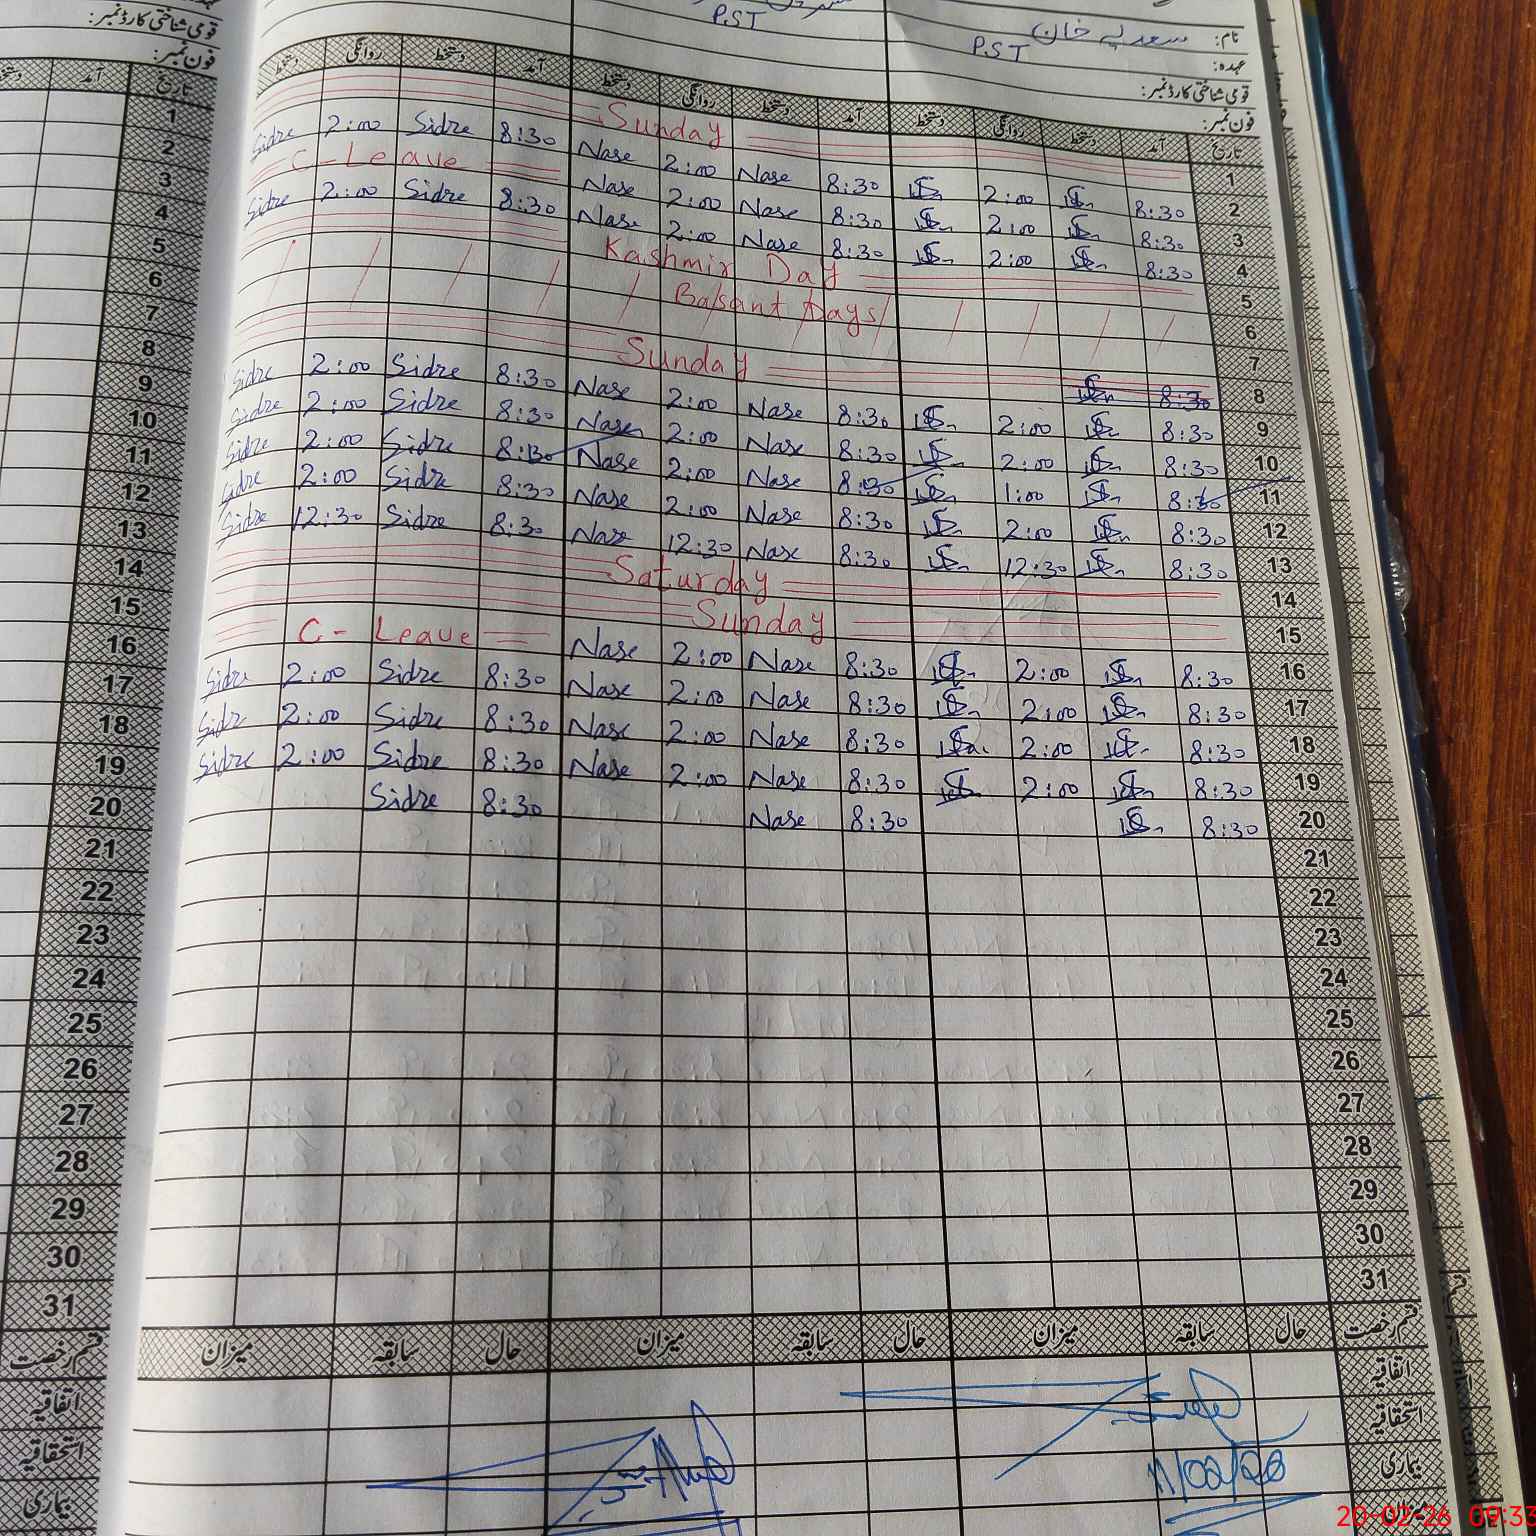 P.ST
نام: سعدیہ خان
عہدہ: P.ST
قومی شناختی کارڈ نمبر:
قومی شناختی کارڈ نمبر:
فون نمبر:
فون نمبر:
تاریخ آمد دستخط روانگی دستخط آمد دستخط روانگی دستخط آمد دستخط روانگی دستخط
تاریخ آمد
1 Sunday
2 8:30 2:00 8:30 Nase 2:00 Nase 8:30 Sidre 2:00 Sidre
3 8:30 2:00 8:30 Nase 2:00 Nase C-Leave
4 8:30 2:00 8:30 Nase 2:00 Nase 8:30 Sidre 2:00 Sidre
5 Kashmir Day
6 Basant Days
7
8 8:30 Sunday
9 8:30 2:00 8:30 Nase 2:00 Nase 8:30 Sidre 2:00 Sidre
10 8:30 2:00 8:30 Nase 2:00 Nase 8:30 Sidre 2:00 Sidre
11 8:30 1:00 8:30 Nase 2:00 Nase 8:30 Sidre 2:00 Sidre
12 8:30 2:00 8:30 Nase 2:00 Nase 8:30 Sidre 2:00 Sidre
13 8:30 12:30 8:30 Nase 12:30 Nase 8:30 Sidre 12:30 Sidre
14 Saturday
15 Sunday
16 8:30 2:00 8:30 Nase 2:00 Nase C-Leave
17 8:30 2:00 8:30 Nase 2:00 Nase 8:30 Sidre 2:00 Sidre
18 8:30 2:00 8:30 Nase 2:00 Nase 8:30 Sidre 2:00 Sidre
19 8:30 2:00 8:30 Nase 2:00 Nase 8:30 Sidre 2:00 Sidre
20 8:30 8:30 Nase 8:30 Sidre
21
22
23
24
25
26
27
28
29
30
31
1
2
3
4
5
6
7
8
9
10
11
12
13
14
15
16
17
18
19
20
21
22
23
24
25
26
27
28
29
30
31
قسم رخصت حال سابقہ میزان حال سابقہ میزان حال سابقہ میزان
قسم رخصت
اتفاقیہ
اتفاقیہ
استحقاقیہ
استحقاقیہ
بیماری
بیماری
میزان
11/02/26
20-02-26 09:33